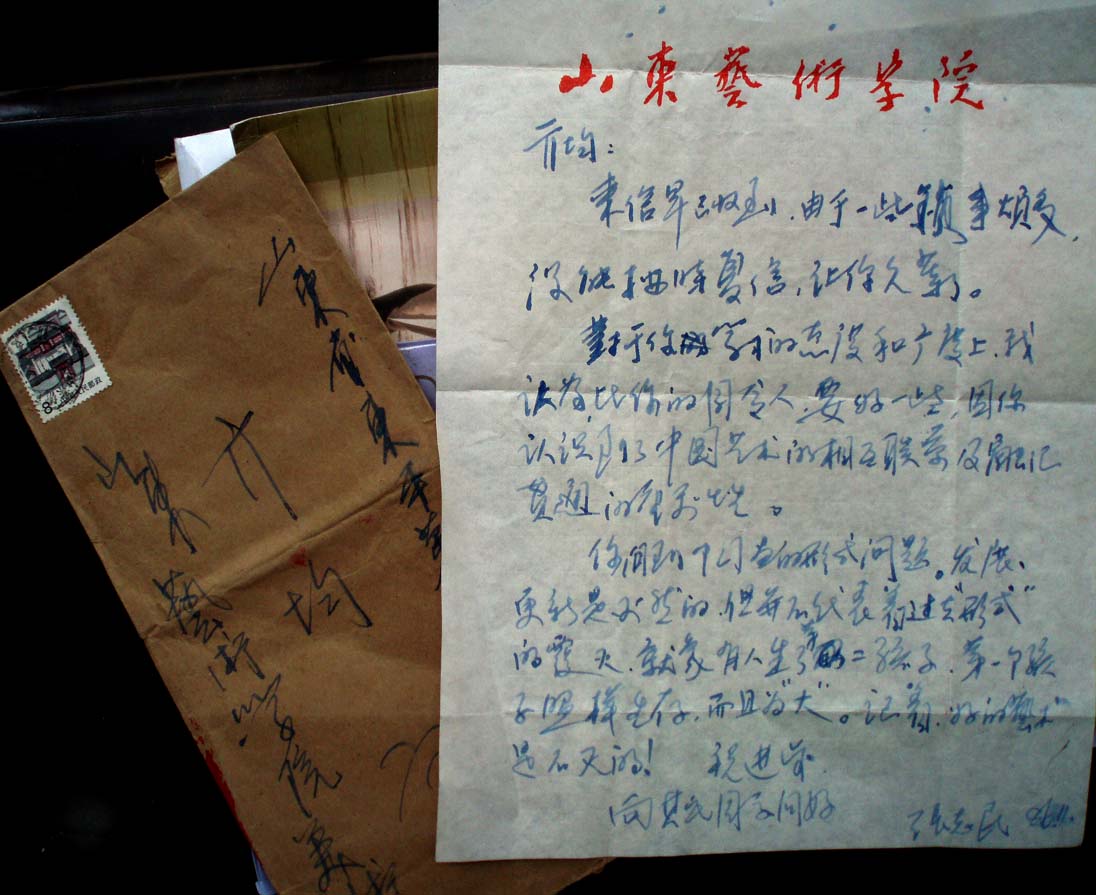 山東藝術学院
亓均：
来信早已收到，由于一些琐事烦多，
没能按时复信，让你久等了。
对于你学术的态度和广度上，我
认为，比你的同令人，要好一些，因你
认识到了中国艺术的相互联系及融汇
贯通的
你问到下门画的形式问题。发展、
更新是必然的，但并不代表着过去"形式"
的灭，就象有人生了第二孩子，第一个孩
子照样生存，而且为"大"。记着，好的藝术
是不灭的！ 祝进步
向其武同学问好
张志民
山東省東平
亓均
山東藝術学院
8